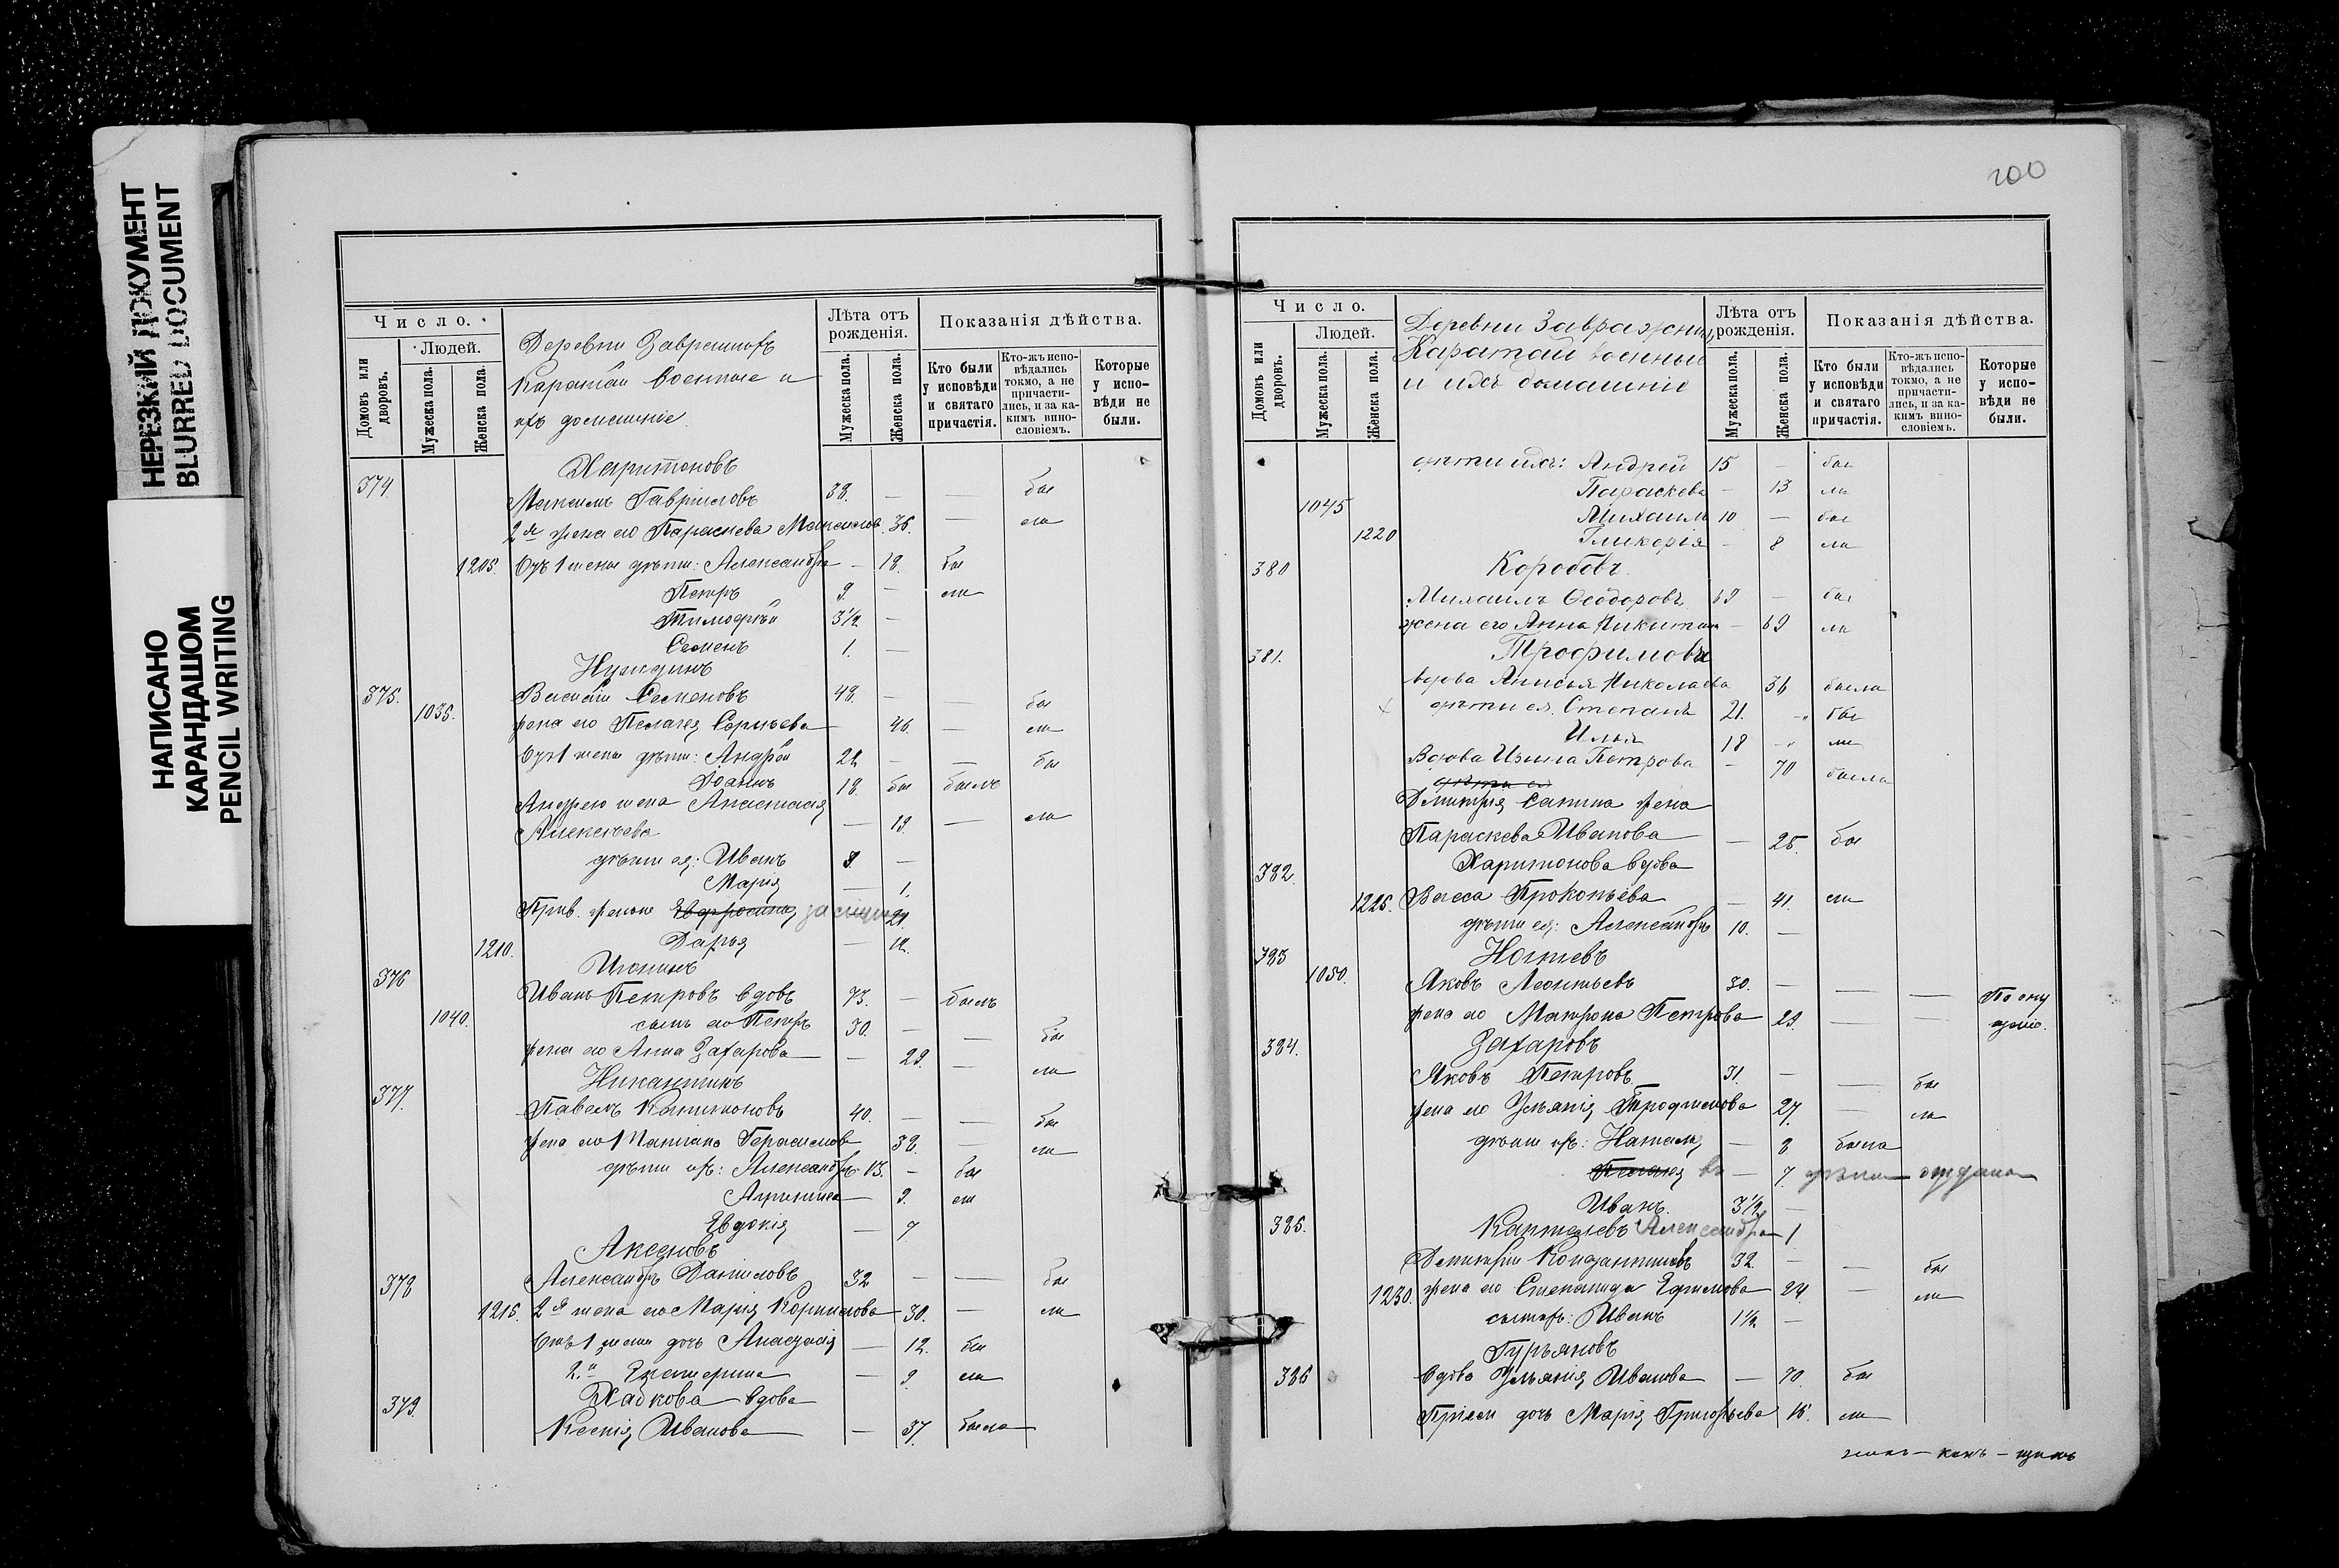 НЕРЕЗКИЙ ДОКУМЕНТ
BLURRED DOCUMENT
НАПИСАНО
КАРАНДАШОМ
PENCIL WRITING
Число.
Домовъ или дворовъ.
Людей.
Мужеска пола.
Женска пола.
Деревни
Каратай военные и
ихъ домашніе
Лѣта отъ рожденія.
Мужеска пола.
Женска пола.
Показанія дѣйства.
Кто были у исповѣди и святаго причастія.
Кто-жъ исповѣдались токмо, а не причастились, и за какимъ винословіемъ.
Которые у исповѣди не были.
Харитоновъ
374. Максимъ Гавриловъ 38. — — бы
2я жена его Параскева 36. — ли
1205. Отъ 1 жены дѣти: Александра — 18. бы
Петръ 9. — ли
Тимофѣй 3½ —
Семенъ 1. —
Нуждинъ
375. 1035. Василій Семеновъ 48. — — бы
жена его Пелагея Сергѣева 46. — ли
Отъ 1 жены дѣти: Андрей 22 — — бы
Іоаннъ 18. бы былъ
Андрея жена Анастасія
Алексѣева — 19. — ли
дѣти ея: Иванъ 8 —
Марія — 1.
Ефросинья 21.
1210. Дарья — 12.
376 Июнинъ
Иванъ Петровъ вдовъ 73. — былъ
1040. сынъ его Петръ 30. — — бы
жена его Анна Захарова — 29. — ли
377. Никантинъ
Павелъ 40. — — бы
жена его Татіана Герасимова 38. — ли
дѣти ихъ: Александръ 13. — бы
Агриппина 9. ли
Евдокія — 7
Аксеновъ
378 Александръ Даниловъ 32 — — бы
1215. 2я жена его Марія Корнилова 30. — ли
Отъ 1 жены дочь Анастасія — 12. бы
2й Екатерина — 9. ли
Хабкова вдова
379. Ксенія Иванова — 37. была
200
Число.
Домовъ или дворовъ.
Людей.
Мужеска пола.
Женска пола.
Деревни Завражни
Каратай военные
и ихъ домашніе
Лѣта отъ рожденія.
Мужеска пола.
Женска пола.
Показанія дѣйства.
Кто были у исповѣди и святаго причастія.
Кто-жъ исповѣдались токмо, а не причастились, и за какимъ винословіемъ.
Которые у исповѣди не были.
дѣти ихъ: Андрей 15 — бы
Параскева — 13 ли
1045 Михаилъ 10 — бы
1220 Гликерья — 8 ли
380 Коробовъ.
Михаилъ Ѳеодоровъ 69 — бы
жена его Анна Никитина — 69 ли
381. Трофимовы
вдова Анисья Николаева 36 была
дѣти ея. Степанъ 21. бы
Илья 18 ли
Вдова Ирина Петрова — 70 была
дѣти ея
Дмитрія Санина жена
Параскева Иванова — 25. бы
382. Харитонова вдова
1225. Васса Прокопьева — 41. ли
дѣти ея: Александръ 10. —
383 Ногтевъ
1050. Яковъ Леонтьевъ 30. — — — По опу
жена его Матрона Петрова 29. — — щенію.
384. Захаровъ
Яковъ Петровъ 31. — — бы
жена его Ульянія Трофимова 27. — ли
дѣти ихъ: Наталья — 8 была
Пелагея въ — 7 дѣти отдана
Иванъ. 3½ —
385. Александра 1
Димитрій 32. — — бы
1230. жена его Степанида Ефимова 24. — ли
сынъ ихъ: Иванъ 1½ —
Гурьяновъ
386 вдова Ульянія Иванова — 70. бы
Пріем дочь Марія Григорьева 15. ли